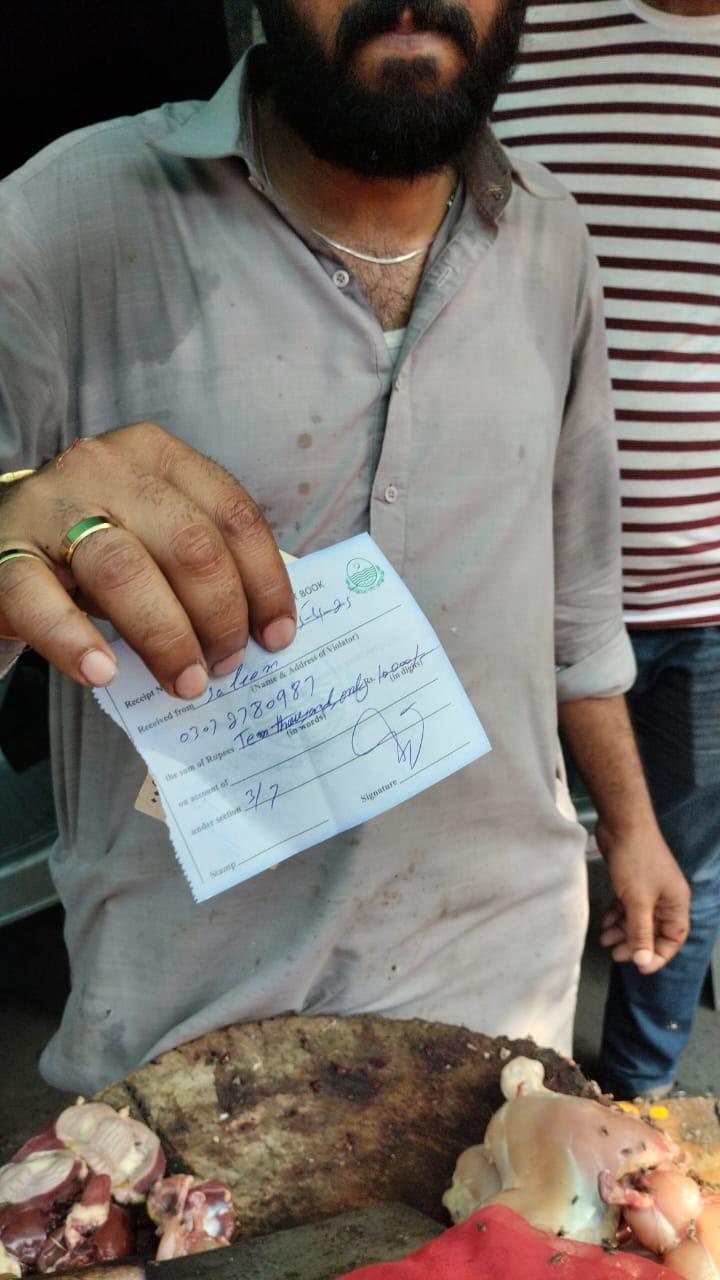 BOOK
5-4-25
Receipt N
Received from Saleem
(Name & Address of Violator)
0307 2780987
the sum of Rupees Ten thousand only Rs. 10,000/-
(in words) (in digits)
on account of
under section 3/7
Signature
Stamp